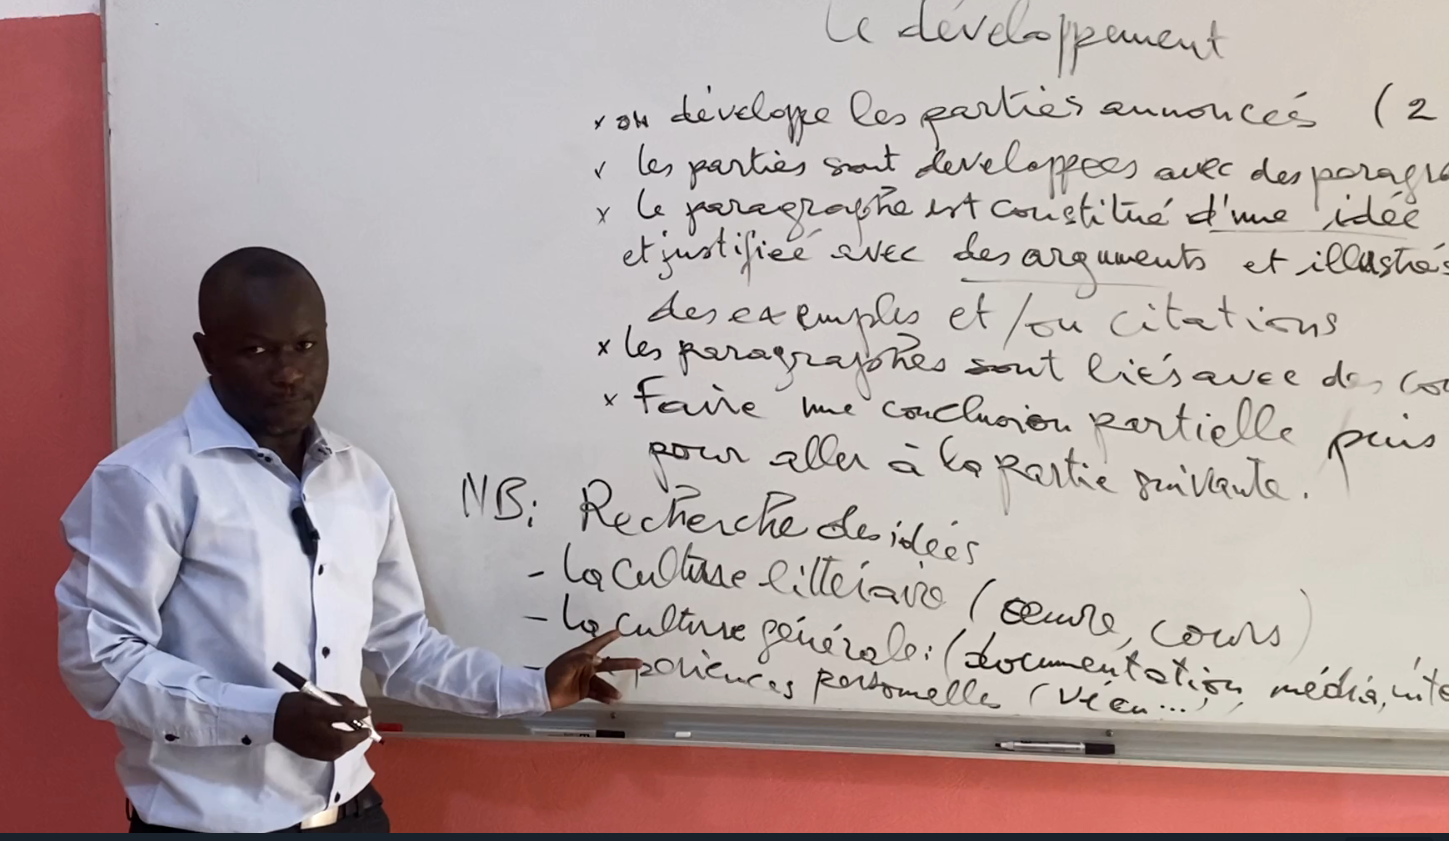 Le développement
x on développe les parties annoncés (2
x les parties sont développees avec des paragra
x le paragraphe est constitué d'une idée
et justifieé avec des arguments et illustrés
des exemples et/ou citations
x les paragraphes sont liés avec des con
x Faire une conclusion partielle puis
pour aller à la partie suivante.
NB: Recherche des idées
- La culture littéraire (œuvre, cours)
- La culture générale: (documentation, média, inte
- périences personnelles (vécu...)